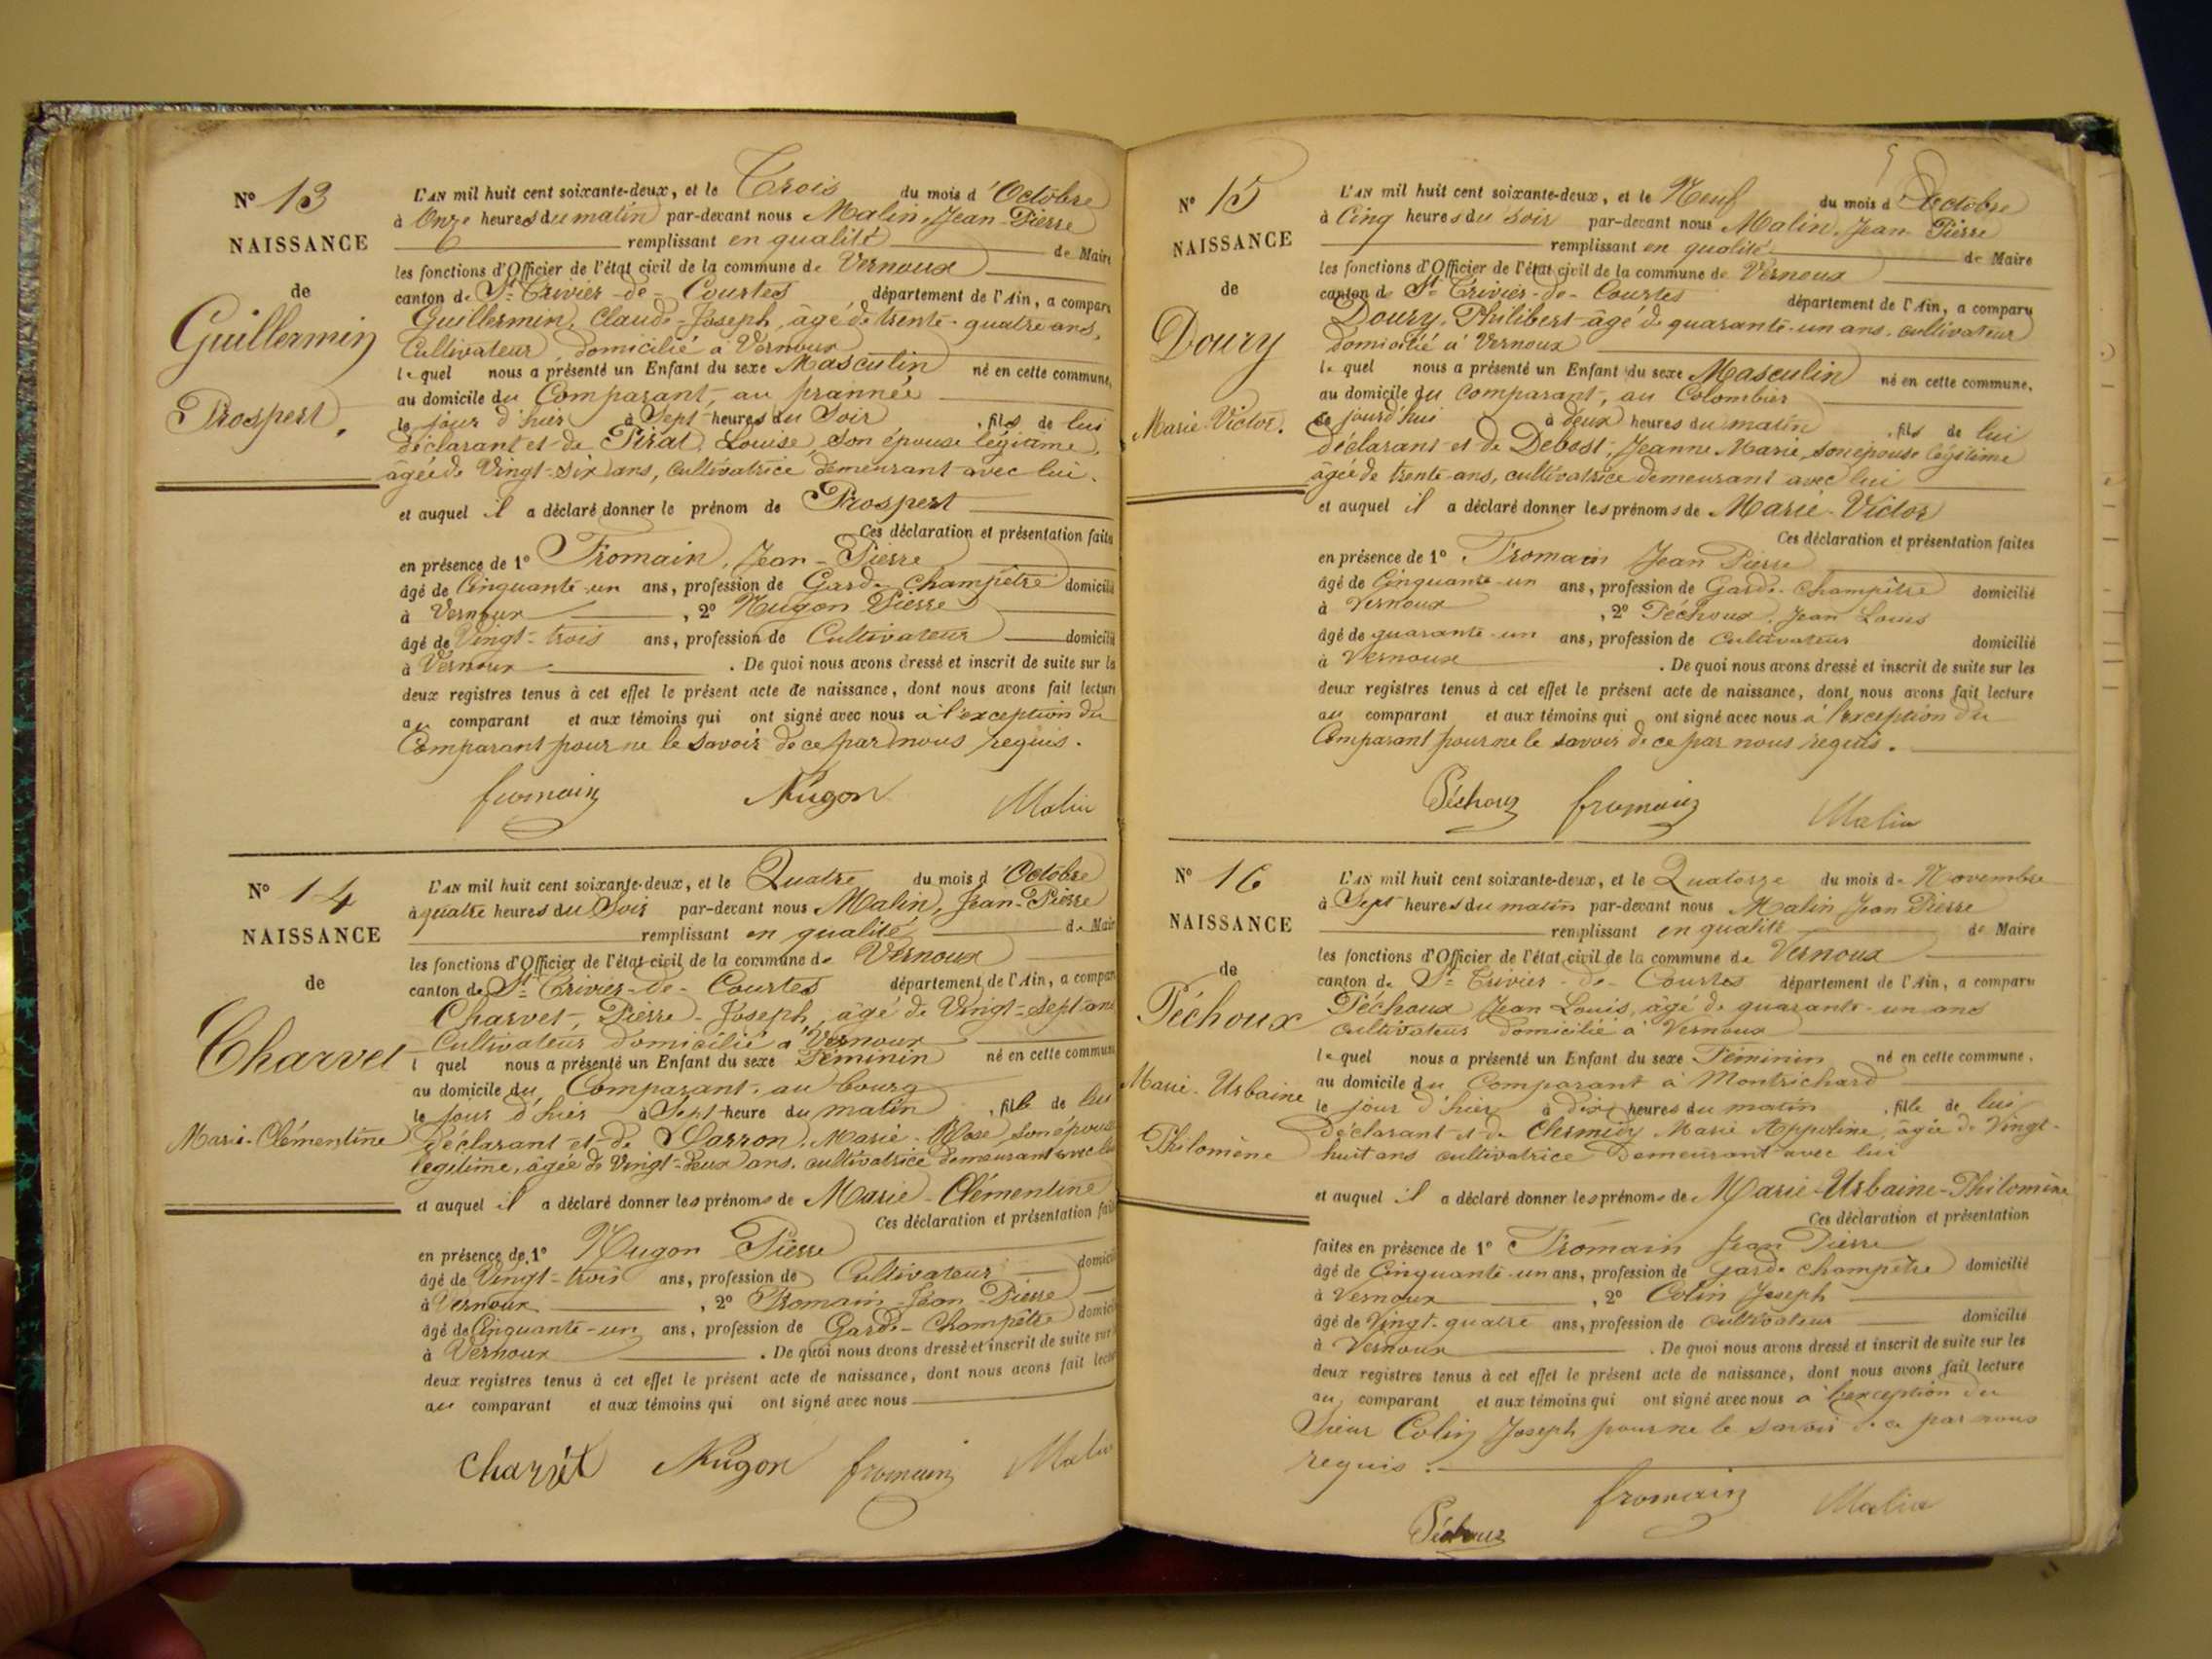 N° 13
NAISSANCE
de
Guillermin
Prospert.
L'AN mil huit cent soixante-deux, et le Trois du mois d'Octobre
à Onze heures du matin par-devant nous Malin, Jean-Pierre
remplissant en qualité de Maire
les fonctions d'Officier de l'état civil de la commune de Vernoux
canton de St Trivier-de-Courtes département de l'Ain, a comparu
Guillermin, Claude-Joseph, âgé de trente-quatre ans,
Cultivateur, domicilié à Vernoux
lequel nous a présenté un Enfant du sexe Masculin né en cette commune,
au domicile du Comparant, au
le jour d'hier à Sept heures du Soir, fils de lui
déclarant et de Pirat, Louise, son épouse légitime,
âgée de Vingt-six ans, Cultivatrice demeurant avec lui.
et auquel il a déclaré donner le prénom de Prospert
Ces déclaration et présentation faites
en présence de 1° Fromain, Jean-Pierre
âgé de Cinquante-un ans, profession de Garde-Champêtre domicilié
à Vernoux, 2° Nugon Pierre
âgé de Vingt-trois ans, profession de Cultivateur domicilié
à Vernoux. De quoi nous avons dressé et inscrit de suite sur les
deux registres tenus à cet effet le présent acte de naissance, dont nous avons fait lecture
au comparant et aux témoins qui ont signé avec nous à l'exception du
Comparant pour ne le savoir de ce par nous requis.
fromain Nugon Malin
N° 14
NAISSANCE
de
Charvet
Marie-Clémentine
L'AN mil huit cent soixante-deux, et le Quatre du mois d'Octobre
à quatre heures du Soir par-devant nous Malin, Jean-Pierre
remplissant en qualité de Maire
les fonctions d'Officier de l'état civil de la commune de Vernoux
canton de St Trivier-de-Courtes département de l'Ain, a comparu
Charvet, Pierre-Joseph, âgé de Vingt-sept ans
Cultivateur domicilié à Vernoux
lequel nous a présenté un Enfant du sexe Féminin né en cette commune
au domicile du Comparant, au bourg
le jour d'hier à Sept heure du matin, fille de lui
déclarant et de Marie-Rose, son épouse
légitime, âgée de Vingt-deux ans, cultivatrice demeurant avec lui
et auquel il a déclaré donner les prénoms de Marie-Clémentine
Ces déclaration et présentation faites
en présence de 1° Nugon Pierre
âgé de Vingt-trois ans, profession de Cultivateur domicilié
à Vernoux, 2° Fromain Jean-Pierre
âgé de Cinquante-un ans, profession de Garde-Champêtre domicilié
à Vernoux. De quoi nous avons dressé et inscrit de suite sur
deux registres tenus à cet effet le présent acte de naissance, dont nous avons fait lecture
au comparant et aux témoins qui ont signé avec nous
Charvet Nugon fromain Malin
N° 15
NAISSANCE
de
Doury
Marie-Victor.
L'AN mil huit cent soixante-deux, et le Neuf du mois d'Octobre
à Cinq heures du Soir par-devant nous Malin, Jean-Pierre
remplissant en qualité de Maire
les fonctions d'Officier de l'état civil de la commune de Vernoux
canton de St Trivier-de-Courtes département de l'Ain, a comparu
Doury, Philibert âgé de quarante-un ans, cultivateur
domicilié à Vernoux
lequel nous a présenté un Enfant du sexe Masculin né en cette commune,
au domicile du comparant, au Colombier
ce jourd'hui à deux heures du matin, fils de lui
déclarant et de Debost, Jeanne Marie, son épouse légitime
âgée de trente ans, cultivatrice demeurant avec lui
et auquel il a déclaré donner les prénoms de Marie-Victor
Ces déclaration et présentation faites
en présence de 1° Fromain Jean Pierre
âgé de Cinquante-un ans, profession de Garde-Champêtre domicilié
à Vernoux, 2° Péchoux, Jean Louis
âgé de quarante-un ans, profession de Cultivateur domicilié
à Vernoux. De quoi nous avons dressé et inscrit de suite sur les
deux registres tenus à cet effet le présent acte de naissance, dont nous avons fait lecture
au comparant et aux témoins qui ont signé avec nous à l'exception du
Comparant pour ne le savoir de ce par nous requis.
Péchoux fromain Malin
N° 16
NAISSANCE
de
Péchoux
Marie-Urbaine
Philomène
L'AN mil huit cent soixante-deux, et le Quatorze du mois de Novembre
à Sept heures du matin par-devant nous Malin Jean Pierre
remplissant en qualité de Maire
les fonctions d'Officier de l'état civil de la commune de Vernoux
canton de St Trivier-de-Courtes département de l'Ain, a comparu
Péchoux Jean Louis, âgé de quarante-un ans
cultivateur domicilié à Vernoux
lequel nous a présenté un Enfant du sexe Féminin né en cette commune,
au domicile du Comparant à Montrichard
le jour d'hier à dix heures du matin, fille de lui
déclarant et de Marie Appoline, âgée de Vingt-
huit ans cultivatrice demeurant avec lui
et auquel il a déclaré donner les prénoms de Marie-Urbaine-Philomène
Ces déclaration et présentation
faites en présence de 1° Fromain Jean Pierre
âgé de Cinquante-un ans, profession de garde champêtre domicilié
à Vernoux, 2° Colin Joseph
âgé de Vingt-quatre ans, profession de cultivateur domicilié
à Vernoux. De quoi nous avons dressé et inscrit de suite sur les
deux registres tenus à cet effet le présent acte de naissance, dont nous avons fait lecture
au comparant et aux témoins qui ont signé avec nous à l'exception du
Sieur Colin Joseph pour ne le savoir de ce par nous
requis.
Péchoux fromain Malin